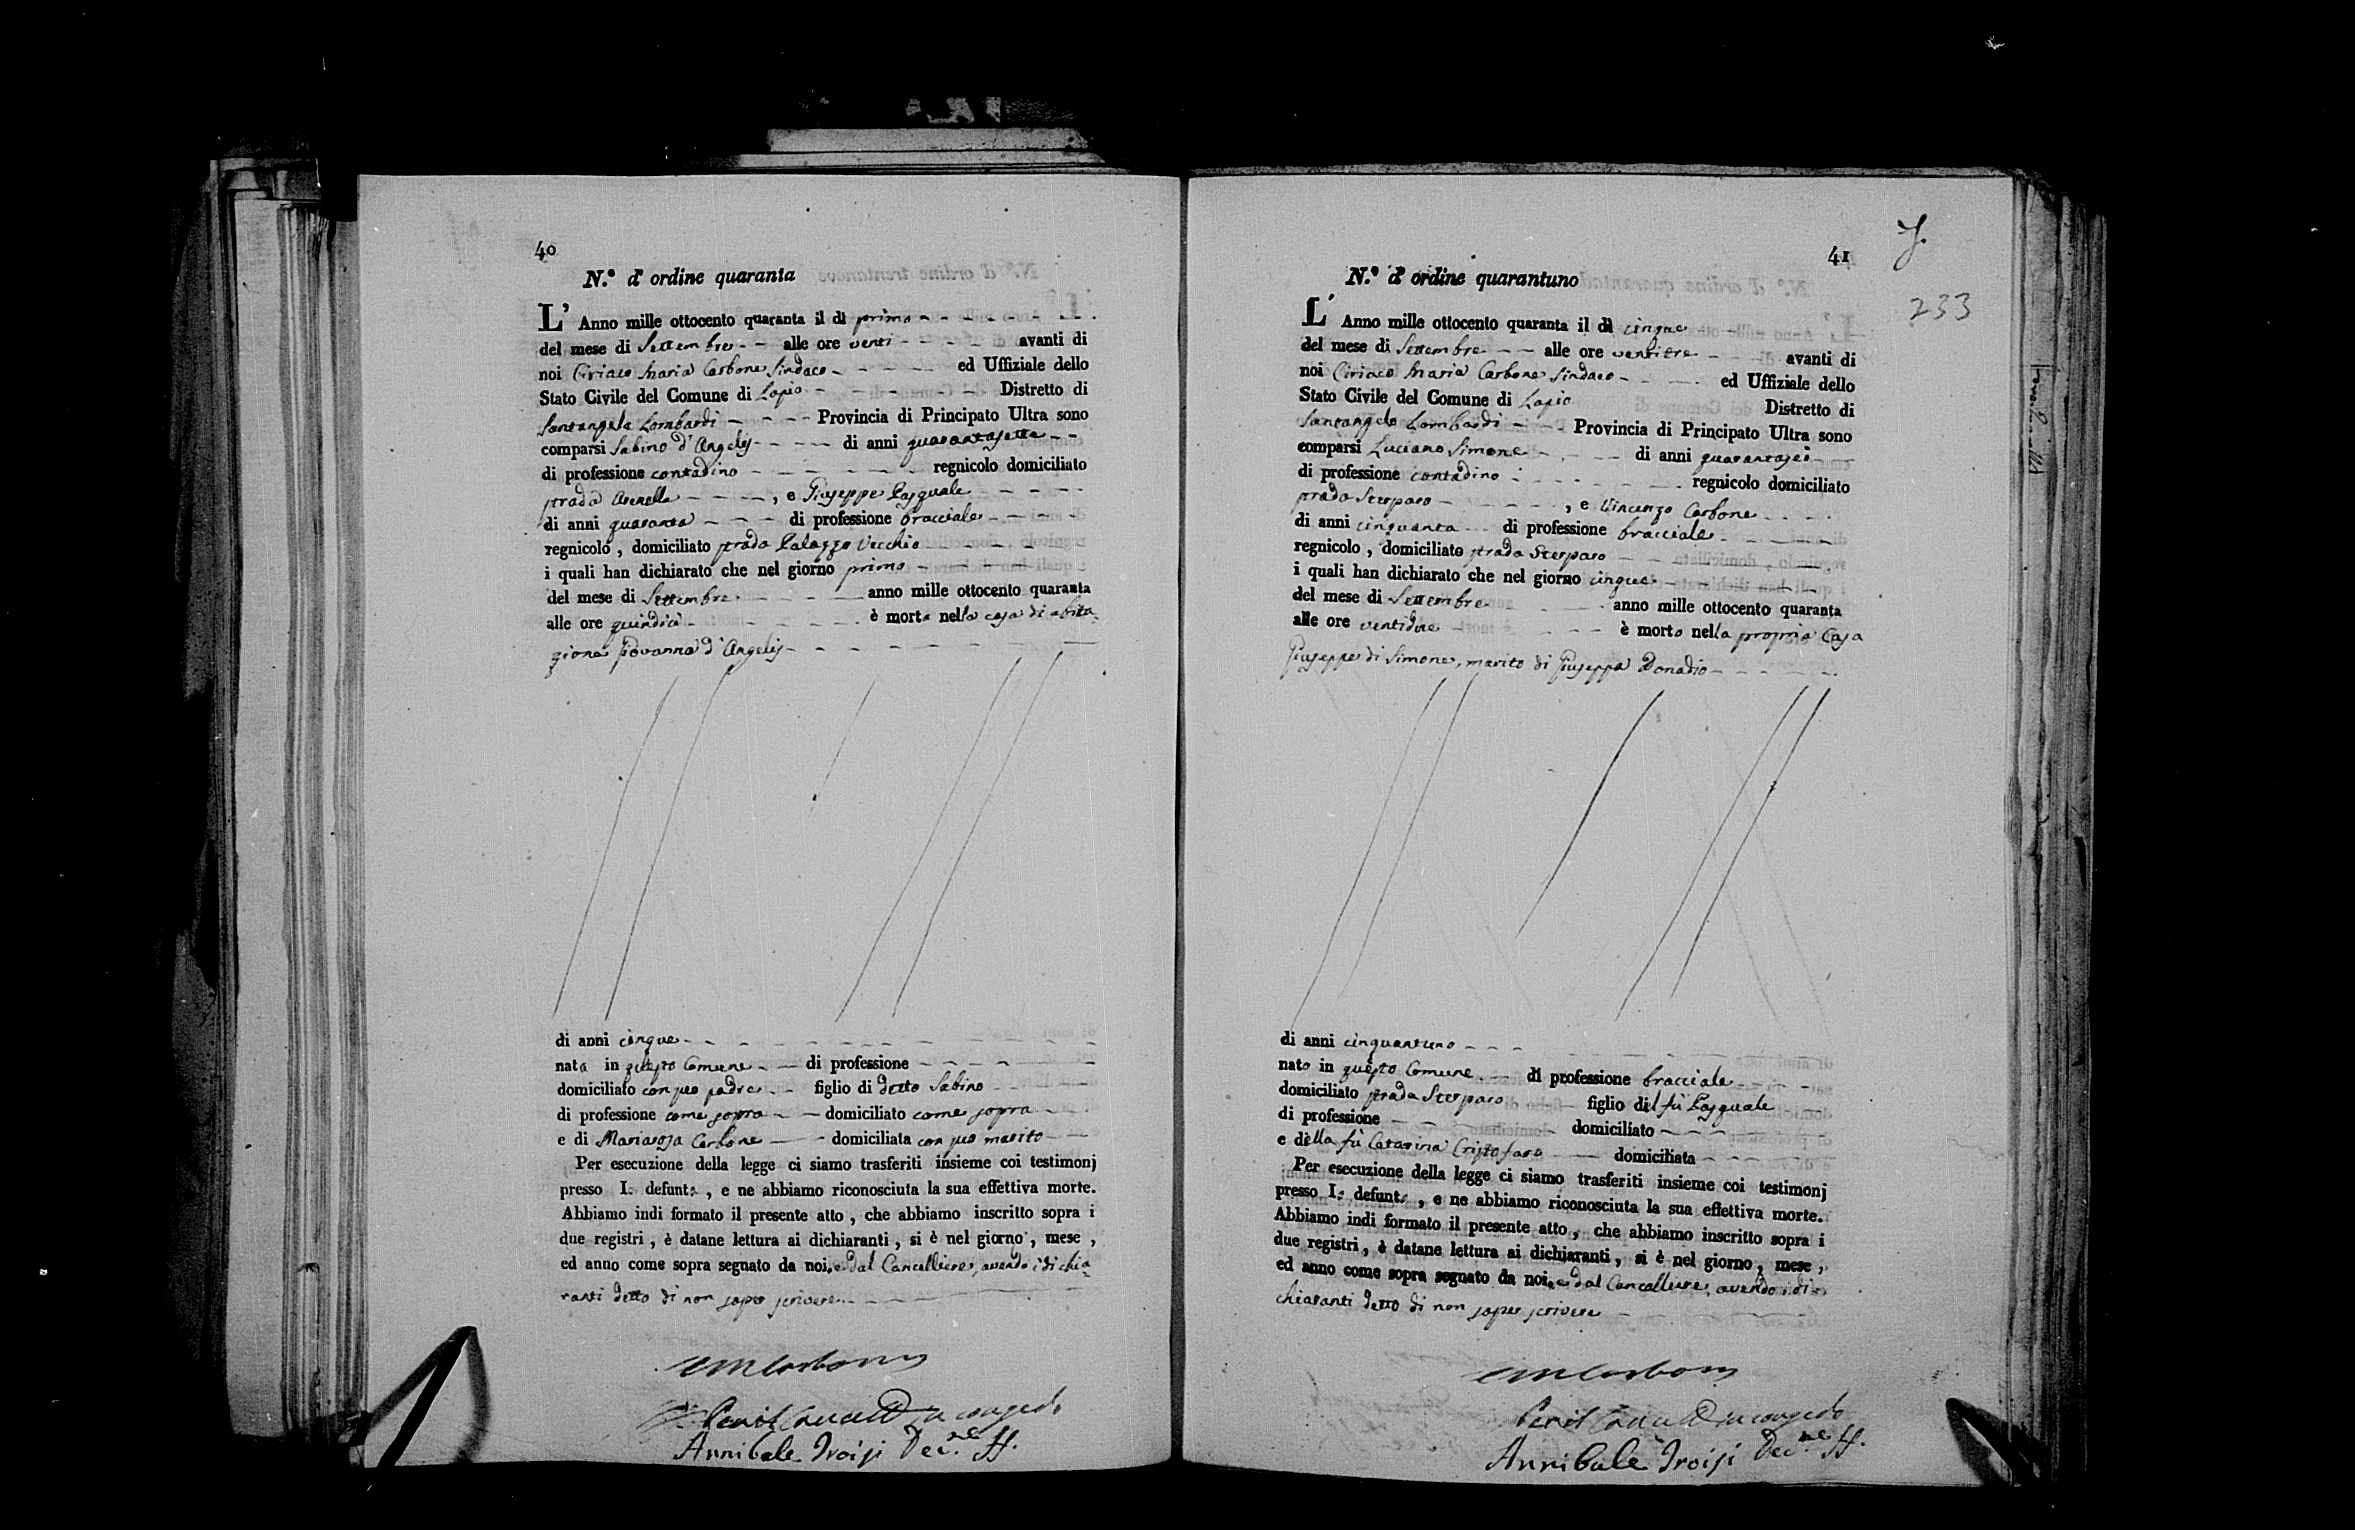 40
N.º d' ordine quaranta
L' Anno mille ottocento quaranta il di primo
del mese di Settembre alle ore venti avanti di
noi Ciriaco Maria Carbone Sindaco ed Uffiziale dello
Stato Civile del Comune di Lapio Distretto di
Santangelo Lombardi Provincia di Principato Ultra sono
comparsi Sabino d'Angelis di anni quarantasette
di professione contadino regnicolo domiciliato
strada Arenella , e Giuseppe Pasquale
di anni quaranta di professione bracciale
regnicolo , domiciliato strada Palazzo Vecchio
i quali han dichiarato che nel giorno primo
del mese di Settembre anno mille ottocento quaranta
alle ore quindici è morta nella casa di abita
zione Giovanna d'Angelis
di anni cinque
nata in questo Comune di professione
domiciliato con suo padre figlio di detto Sabino
di professione come sopra domiciliato come sopra
e di Mariarosa Carbone domiciliata con suo marito
Per esecuzione della legge ci siamo trasferiti insieme coi testimonj
presso l. defunt. , e ne abbiamo riconosciuta la sua effettiva morte.
Abbiamo indi formato il presente atto , che abbiamo inscritto sopra i
due registri , è datane lettura ai dichiaranti , si è nel giorno , mese ,
ed anno come sopra segnato da noi, e dal Cancelliere, avendo i dichia
ranti detto di non saper scrivere
CMCarbone
in congedo
Annibale Troisi Dec.ne ff.
41
233
N.º d' ordine quarantuno
L' Anno mille ottocento quaranta il di cinque
del mese di Settembre alle ore ventitre avanti di
noi Ciriaco Maria Carbone Sindaco ed Uffiziale dello
Stato Civile del Comune di Lapio Distretto di
Santangelo Lombardi Provincia di Principato Ultra sono
comparsi Luciano Simone di anni quarantasei
di professione contadino regnicolo domiciliato
strada Sterparo , e Vincenzo Carbone
di anni cinquanta di professione bracciale
regnicolo , domiciliato strada Sterparo
i quali han dichiarato che nel giorno cinque
del mese di Settembre anno mille ottocento quaranta
alle ore ventidue è morto nella propria casa
Giuseppe di Simone, marito di Giuseppa Donadio
di anni cinquantuno
nato in questo Comune di professione bracciale
domiciliato strada Sterparo figlio del fù Pasquale
di professione domiciliato
e della fù Catarina Cristofaro domiciliata
Per esecuzione della legge ci siamo trasferiti insieme coi testimonj
presso l. defunt. , e ne abbiamo riconosciuta la sua effettiva morte.
Abbiamo indi formato il presente atto , che abbiamo inscritto sopra i
due registri , è datane lettura ai dichiaranti , si è nel giorno , mese ,
ed anno come sopra segnato da noi, e dal Cancelliere, avendo i di
chiaranti detto di non saper scrivere
CMCarbone
in congedo
Annibale Troisi Dec.ne ff.